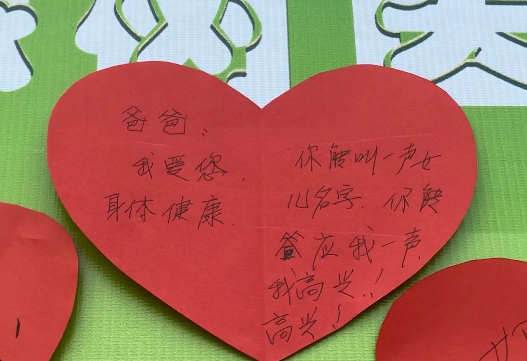 爸爸，
我爱您，
身体健康
你能叫一声女
儿名字，你能
答应我一声
我高兴！！
高兴！